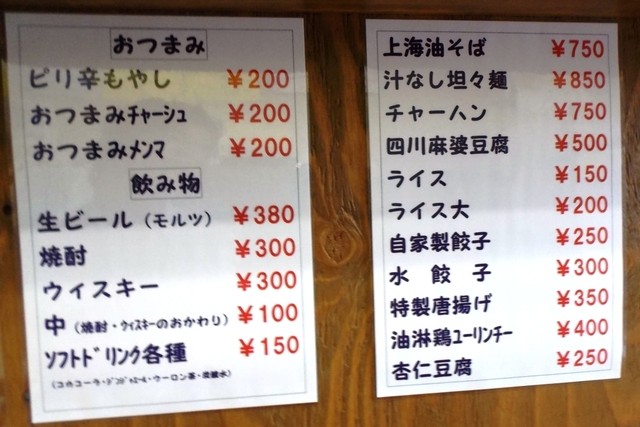 おつまみ
ピリ辛もやし ¥200
おつまみチャーシュ ¥200
おつまみメンマ ¥200
飲み物
生ビール(モルツ) ¥380
焼酎 ¥300
ウィスキー ¥300
中(焼酎・ウィスキーのおかわり) ¥100
ソフトドリンク各種 ¥150
(コカコーラ・ジンジャエール・ウーロン茶・炭酸水)
上海油そば ¥750
汁なし坦々麺 ¥850
チャーハン ¥750
四川麻婆豆腐 ¥500
ライス ¥150
ライス大 ¥200
自家製餃子 ¥250
水 餃 子 ¥300
特製唐揚げ ¥350
油淋鶏ユーリンチー ¥400
杏仁豆腐 ¥250